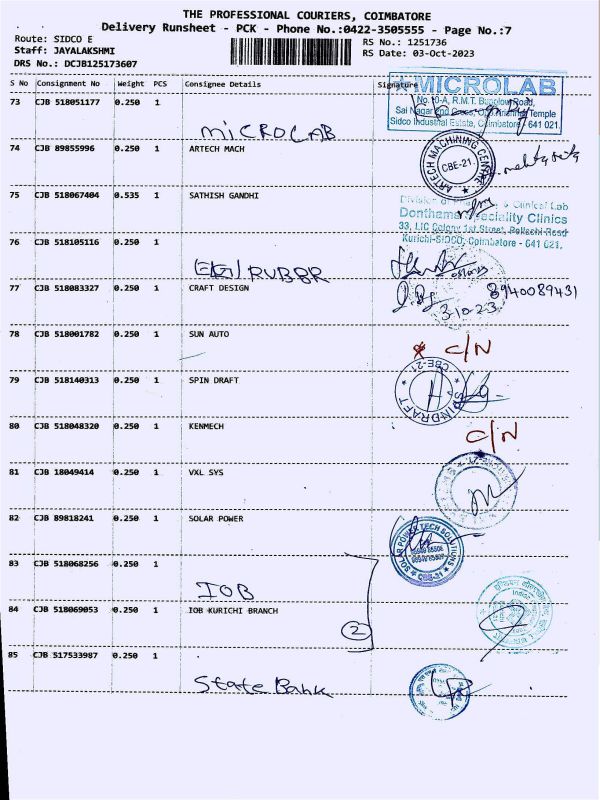 THE PROFESSIONAL COURIERS, COIMBATORE
Delivery Runsheet - PCK - Phone No.:0422-3505555 - Page No.:7
Route: SIDCO E
RS No.: 1251736
Staff: JAYALAKSHMI
RS Date: 03-Oct-2023
DRS No.: DCJB125173607
S No Consignment No Weight PCS Consignee Details Signature
MICROLAB
73 CJB 518051177 0.250 1
No.10-A, R.M.T. Bunglow Road,
Sidco Industrial Estate, Coimbatore - 641 021.
MICROLAB
74 CJB 89855996 0.250 1 ARTECH MACH
ARTECH MACHINING CENTRE
CBE-21.
75 CJB 518067404 0.535 1 SATHISH GANDHI
Clinical Lab
Speciality Clinics
33, LIC Colony 1st Street, Pollachi Road
Kurichi-SIDCO, Coimbatore - 641 021.
76 CJB 518105116 0.250 1
RUBBR
77 CJB 518083327 0.250 1 CRAFT DESIGN
8940089431
3-10-23
78 CJB 518001782 0.250 1 SUN AUTO
C/N
79 CJB 518140313 0.250 1 SPIN DRAFT
CBE-21
SPINDRAFT
80 CJB 518048320 0.250 1 KENMECH
C/N
81 CJB 18049414 0.250 1 VXL SYS
82 CJB 89818241 0.250 1 SOLAR POWER
SOLAR POWER TECH SOLUTIONS
CBE-21
83 CJB 518068256 0.250 1
IOB
84 CJB 518069053 0.250 1 IOB KURICHI BRANCH
2
85 CJB 517533987 0.250 1
State Bank